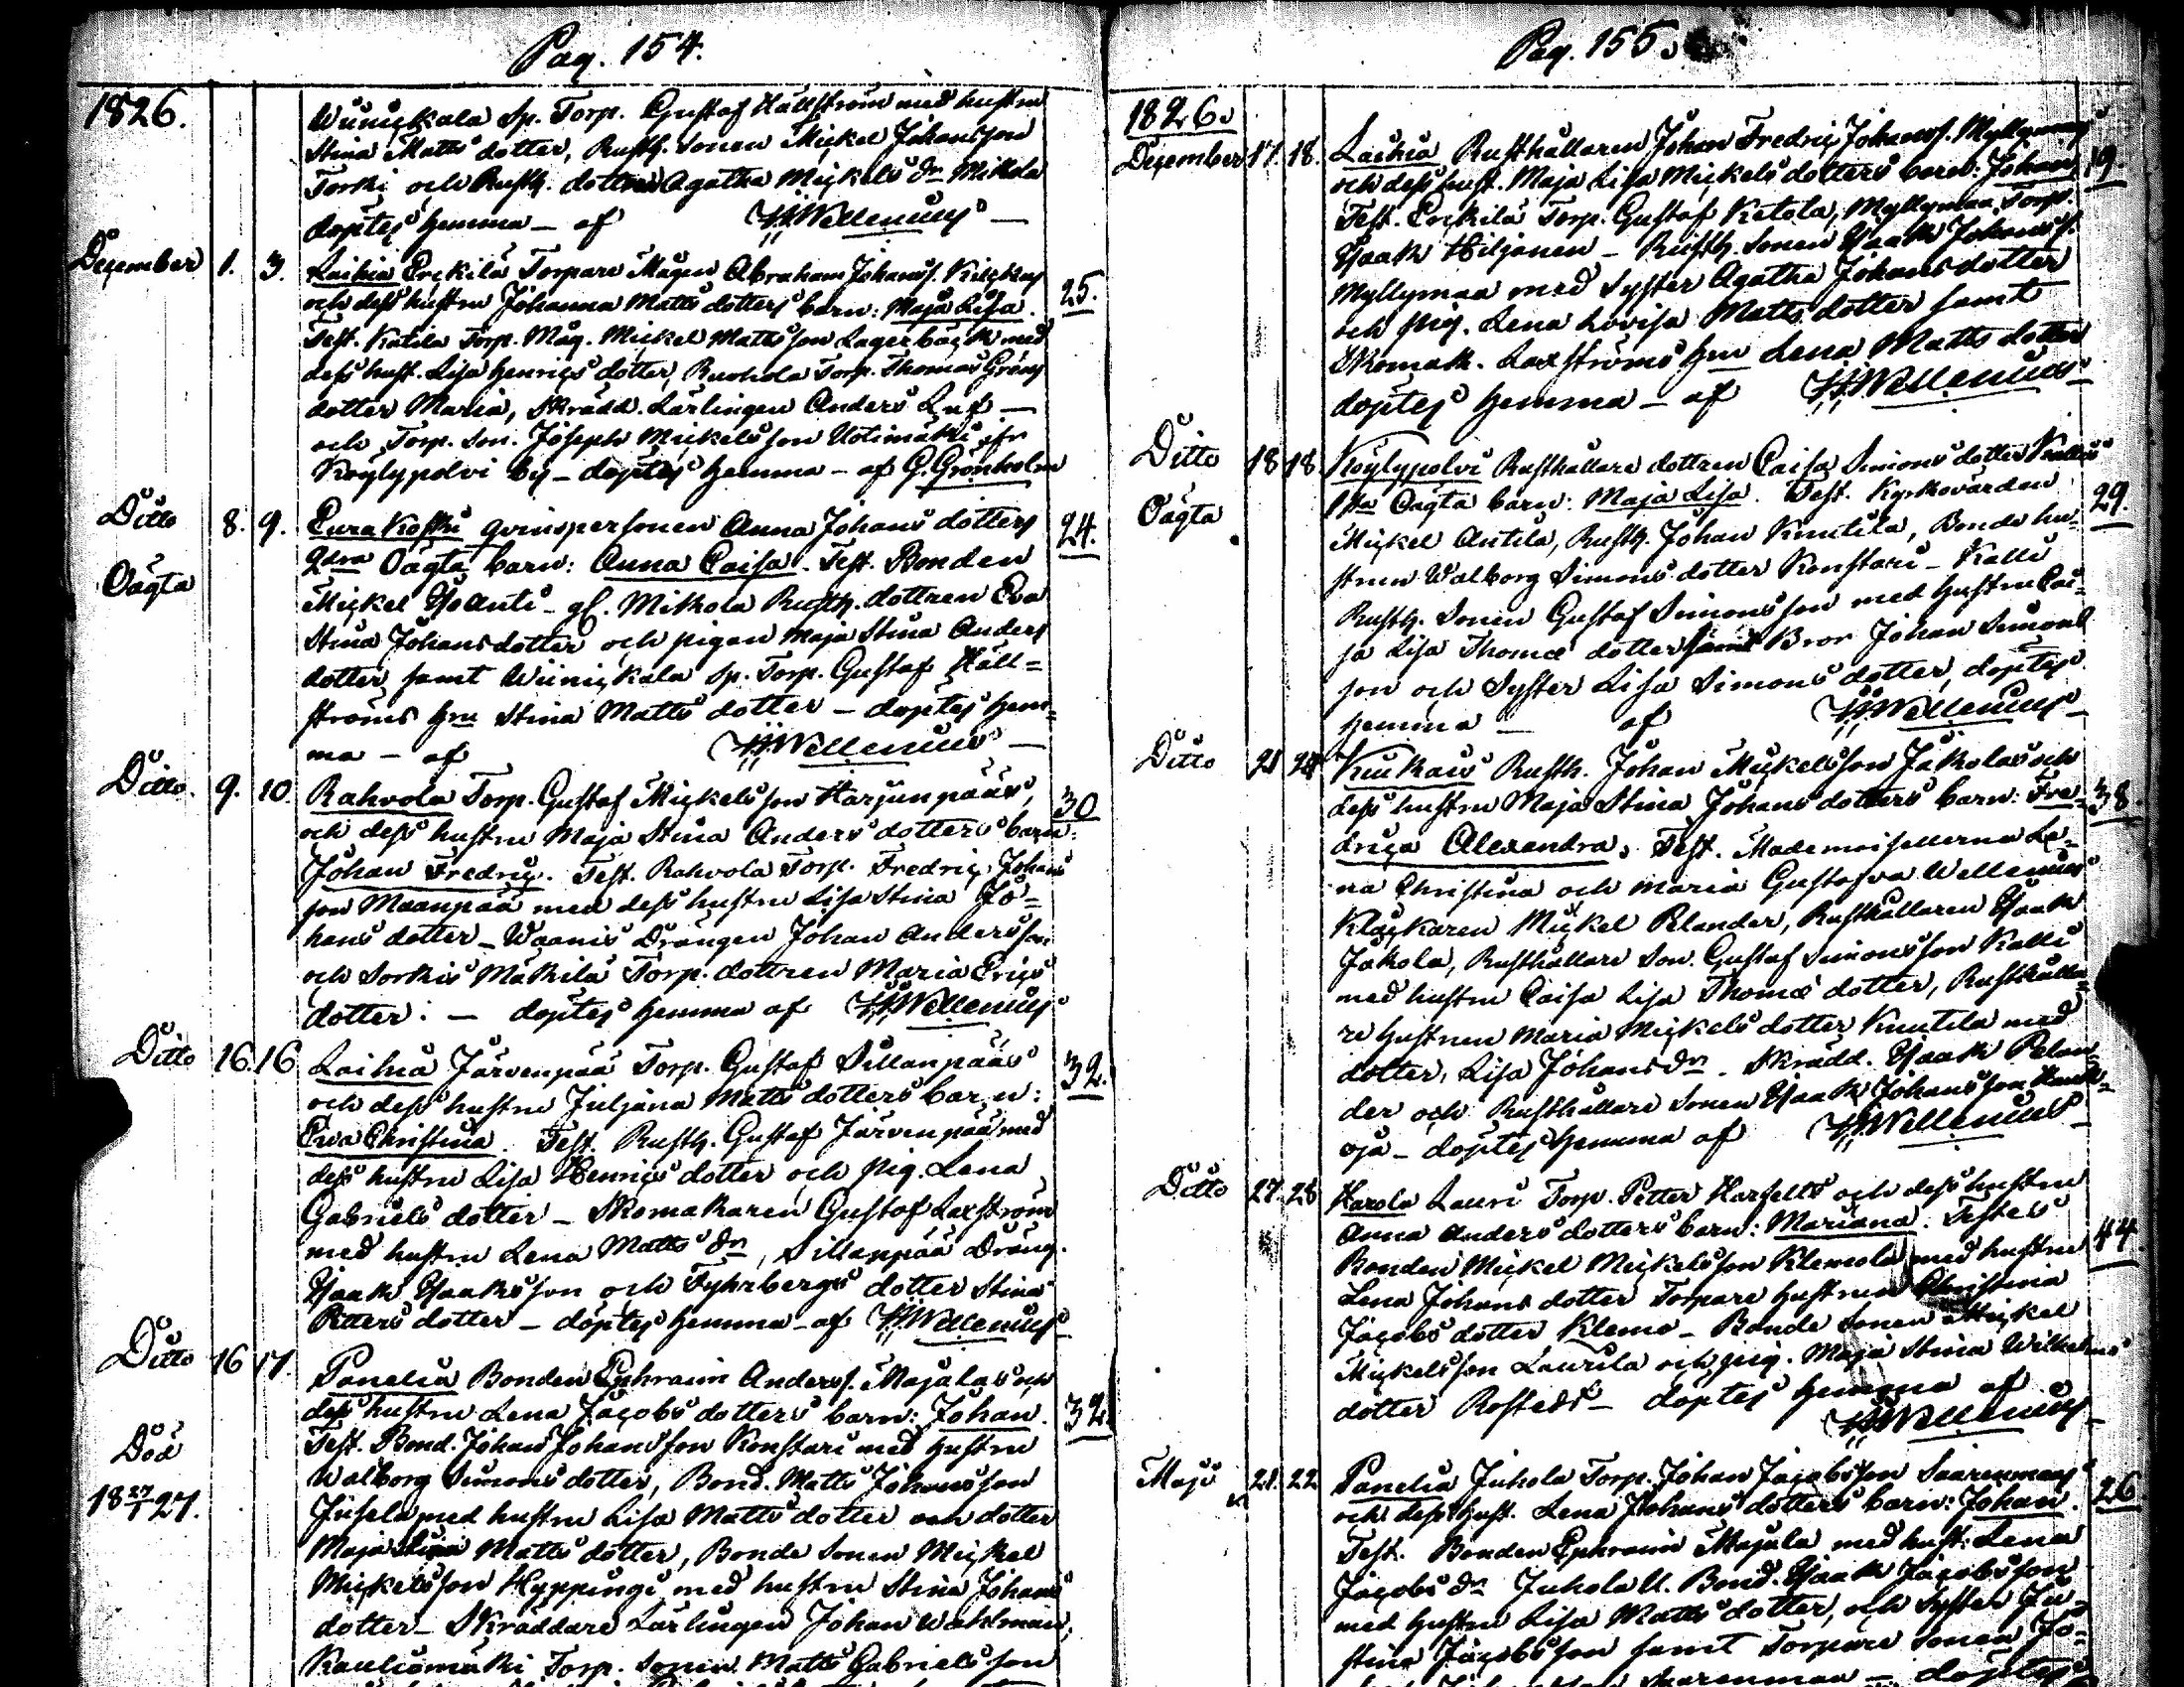 Pag. 154.
1826.
Wünickala Sp. Torp. Gustaf Hällström med hustru
Stina Matts dotter, Rusth. Sonen Mickel Johansson
Torki och Rusth. dottren Agatha Mickels dr Mikola
döptes hemma - af HWellenius -
December 1. 3. Laihia Erckilä Torpare Mågen Abraham Johanss.
och dess hustru Johanna Matts dotters barn: Maja Lisa. 25.
Test. Katila Torp. Måg. Mickel Mattsson Lagerbäck med
dess hust. Lisa Henrics dotter, Ruohola Torp. Thomas Gröns
dotter Maria, Skrädd. Lärlingen Anders -
och Torp. Son. Joseph Mickelsson Uotimäki ifr
Köylypolvi by - döptes hemma - af G. Grönholm
Ditto 8. 9. Eura Koski qvinspersonen Anna Johans dotters 24.
Oägta 2dra Oägta barn: Anna Caisa. Test. Bonden
Mickel Yli Anti - gl. Mikola Rusth. dottren Eva
Stina Johansdotter och pigan Maja Stina Anders
dotter samt Wiinickala sp. Torp. Gustaf Häll=
ströms hru Stina Matts dotter - döptes hem=
ma - af HWellenius -
Ditto. 9. 10. Rahvola Torp. Gustaf Mickelsson Harjunpääs, 30
och dess hustru Maja Stina Anders dotters barn:
Johan Fredric. Test. Rahvola Torp. Fredric Johans
son Maanpää med dess hustru Lisa Stina Jo=
hans dotter - Waanis Drängen Johan Andersson
och Sorkis Mäkilä Torp. dottren Maria Erics
dotter: - döptes hemma af HWellenius
Ditto 16. 16 Laihia Järvenpää Torp. Gustaf Sillanpääs 32.
och dess hustru Juljana Matts dotters barn:
Ewa Christina. Test. Rusth. Gustaf Järvenpää med
dess hustru Lisa Henrics dotter och Pig. Lena
Gabriels dotter - Skomakaren Gustaf Laxström
med hustru Lena Matts dr, Sillanpää Dräng.
Isaak Isaksson och Fyhrbergs dotter Stina
Petters dotter - döptes hemma - af HWellenius
Ditto 16 17. Panelia Bonden Ephraim Anderss. Majalas och
dess hustru Lena Jacobs dotters barn: Johan. 32.
Död Test. Bond. Johan Johansson Konstari med hustru
1827/1 27. Walborg Simons dotter, Bond. Matts Johansson
Jusela med hustru Lisa Matts dotter och dotter
Maja Lisa Matts dotter, Bonde Sonen Mickel
Mickelsson Hyppingi med hustru Stina Johans
dotter - Skräddare Lärlingen Johan Wahlman,
Kauliomäki Torp. Sonen Matts Gabrielsson
Pag. 155.
1826.
December 17. 18. Laihia Rusthållaren Johan Fredric Johanss. Myllymaas
och dess hust. Maja Lisa Mickels dotters barn: Johan, 19.
Test. Erckilä Torp. Gustaf Ketola, Myllymaa Torp.
Isaak Hiljanen - Rusth. Sonen Isaak Johanss.
Myllymaa med Syster Agatha Johansdotter
och pig. Lena Lovisa Matts dotter samt
Skomak. Laxströms hru Lena Matts dotter
döptes hemma - af HWellenius
Ditto 18 18 Köylypolvi Rusthållare dottren Caisa Simons dotter Kallis
Oägta 1sta Oägta barn: Maja Lisa. Test. Kyrkovärden 29.
Mickel Antila, Rusth. Johan Knutila, Bonde hu=
strun Walborg Simons dotter Konstari - Kalli
Rusth. Sonen Gustaf Simonsson med hustru Cai=
sa Lisa Thomæ dotter samt Bror Johan Simons
son och Syster Lisa Simons dotter, döptes
hemma - af HWellenius
Ditto 21 24 Kiukais Rusth. Johan Mickelsson Jakolas och
dess hustru Maja Stina Johans dotters barn: Fre= 38.
drica Alexandra. Test. Mademoisellerna Le=
na Christina och Maria Gustafva Wellenius
Klockaren Mickel Pelander, Rusthållaren Isaak
Jakola, Rusthållare Son. Gustaf Simonsson Kalli
med hustru Caisa Lisa Thomæ dotter, Rusthålla=
re hustrun Maria Mickels dotter Knutila med
dotter, Lisa Johans dr. Skrädd. Isaak Pelan=
der och Rusthållare Sonen Isaak Johansson
oja - döptes hemma af HWellenius
Ditto 27. 28 Harola Lauri Torp. Petter Harfelts och dess hustru
Anna Anders dotters barn: Mariana. Testes 44.
Bonden Mickel Mickelsson Klemola med hustru
Lena Johans dotter Torpare hustrun Christina
Jacobs dotter Klemo - Bonde Sonen Mickel
Mickelsson Laurila och pig. Maja Stina Wilhelms
dotter Rostedt - döptes hemma af
HWellenius
Maji 21. 22 Panelia Juhola Torp. Johan Jacobsson Saarenmaas
och dess hust. Lena Johans dotters barn: Johan. 26
Test. Bonden Ephraim Majala med hust. Lena
Jacobs dr Juhola U. Bond. Isaak Jacobsson
med hustru Lisa Matts dotter, och Syster Ju=
stina Jacobsson samt Torpare Sonen Jo=
Saarenmaa - döptes